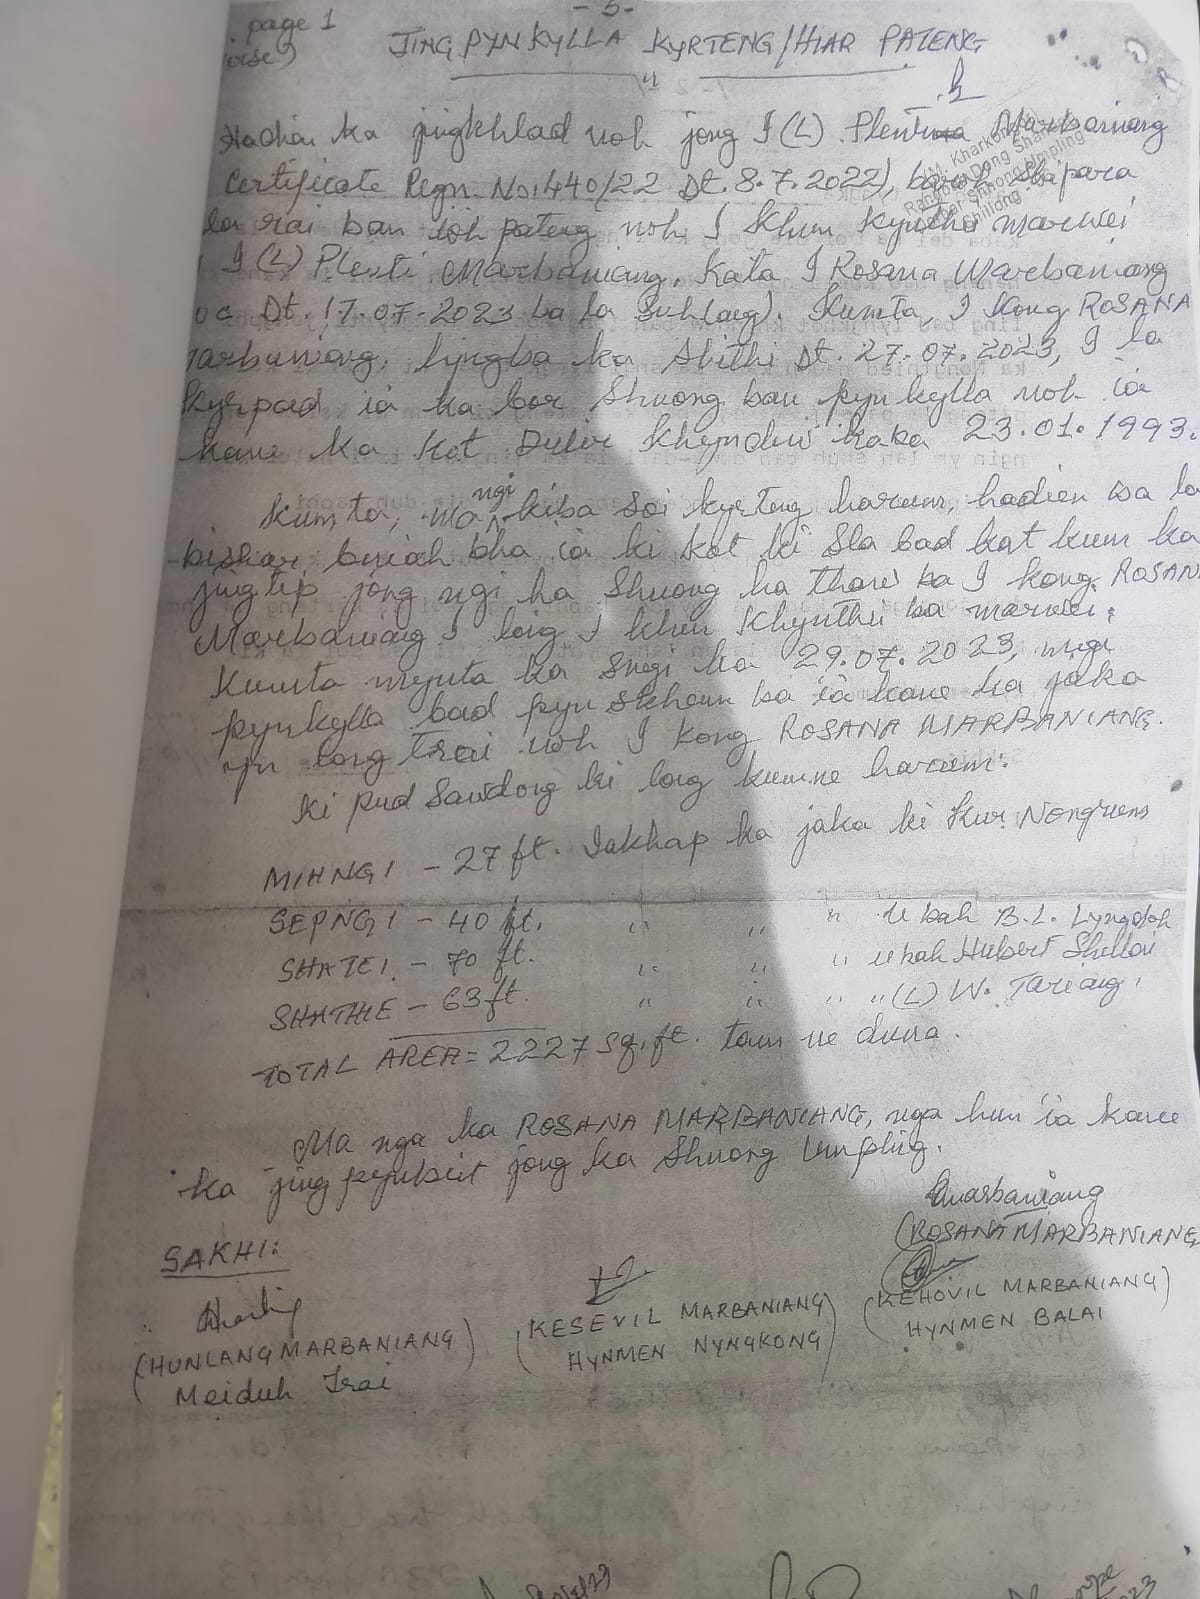 - 5 -
page 1
JINGPYNKYLLA KYRTENG/HIAR PATENG
Hadien ka jingkhlad noh jong I (L) Marbaniang
Certificate Regn. No. 440/22 Dt. 8.7.2022), para
la rai ban ioh pateng noh I khun kynthei marwei
I (L) Plesti Marbaniang. Kata I Rosana Marbaniang
Dt. 17.07.2023 ba la buh (ang). Kumta, I kong ROSANA
arbaniang, lyngba ka shithi Dt. 27.07.2023, I la
kyrpad ia ka bor shnong ban pynkylla noh ia
kane ka kot Dulir khyndew kaba 23.01.1993.
Kumta, ma ngi kiba soi kyrteng harum, hadien ba la
bishar bniah bha ia ki kot ki sla bad kat kum ka
jingtip jong ngi ka shnong ka thaw ba I kong ROSAN
Marbaniang I long I khun khynthei ba marwei.
Kumta mynta ka sngi ka 29.07.2023, ngi
pynkylla bad pyn skhem ba ia kane ka jaka
yn long trai noh I kong ROSANA MARBANIANG.
Ki pud sawdong ki long kumne harum:
MIHNGI - 27 ft. Iakhap ka jaka ki kur Nongrum
SEPNGI - 40 ft. " " " u bah B.L. Lyngdoh
SHATEI - 70 ft. " " " u bah Hubert Shullai
SHATHIE - 63 ft. " " " " (L) W. Tariang.
TOTAL AREA = 2227 sq. ft. tam ne duna.
Ma nga ka ROSANA MARBANIANG, nga hun ia kane
ka jing pynbeit jong ka Shnong Umpling.
Rmarbaniang
(ROSANA MARBANIANG
SAKHI:
(HUNLANG MARBANIANG)
Meiduh Trai
(KESEVIL MARBANIANG)
HYNMEN NYNGKONG
(KEHOVIL MARBANIANG)
HYNMEN BALAI